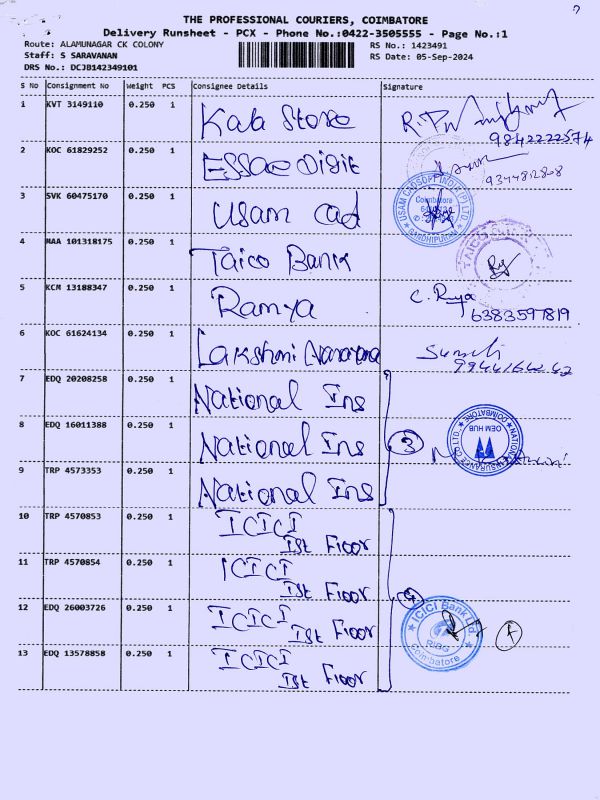 THE PROFESSIONAL COURIERS, COIMBATORE
Delivery Runsheet - PCX - Phone No.:0422-3505555 - Page No.:1
Route: ALAMUNAGAR CK COLONY RS No.: 1423491
Staff: S SARAVANAN RS Date: 05-Sep-2024
DRS No.: DCJB142349101
S No Consignment No Weight PCS Consignee Details Signature
1 KVT 3149110 0.250 1 Kala Store
9842222574
2 KOC 61829252 0.250 1 ESSAE Digit
9344812868
3 SVK 60475170 0.250 1 Usam Cad
USAM CADSOFT INDIA (P) LTD.
Coimbatore
GANDHIPURAM
4 MAA 101318175 0.250 1 Taico Bank
TAICO
5 KCM 13188347 0.250 1 Ramya C. Ramya
6383597819
6 KOC 61624134 0.250 1 Lakshmi Narayana
7 EDQ 20208258 0.250 1 National Ins
8 EDQ 16011388 0.250 1 National Ins 3
NATIONAL INSURANCE CO. LTD.
OEM HUB
COIMBATORE
9 TRP 4573353 0.250 1 National Ins
10 TRP 4570853 0.250 1 ICICI
Ist Floor
11 TRP 4570854 0.250 1 ICICI
Ist Floor
4
12 EDQ 26003726 0.250 1 ICICI
Ist Floor
ICICI Bank Ltd.
RIBG
Coimbatore
13 EDQ 13578858 0.250 1 ICICI
Ist Floor